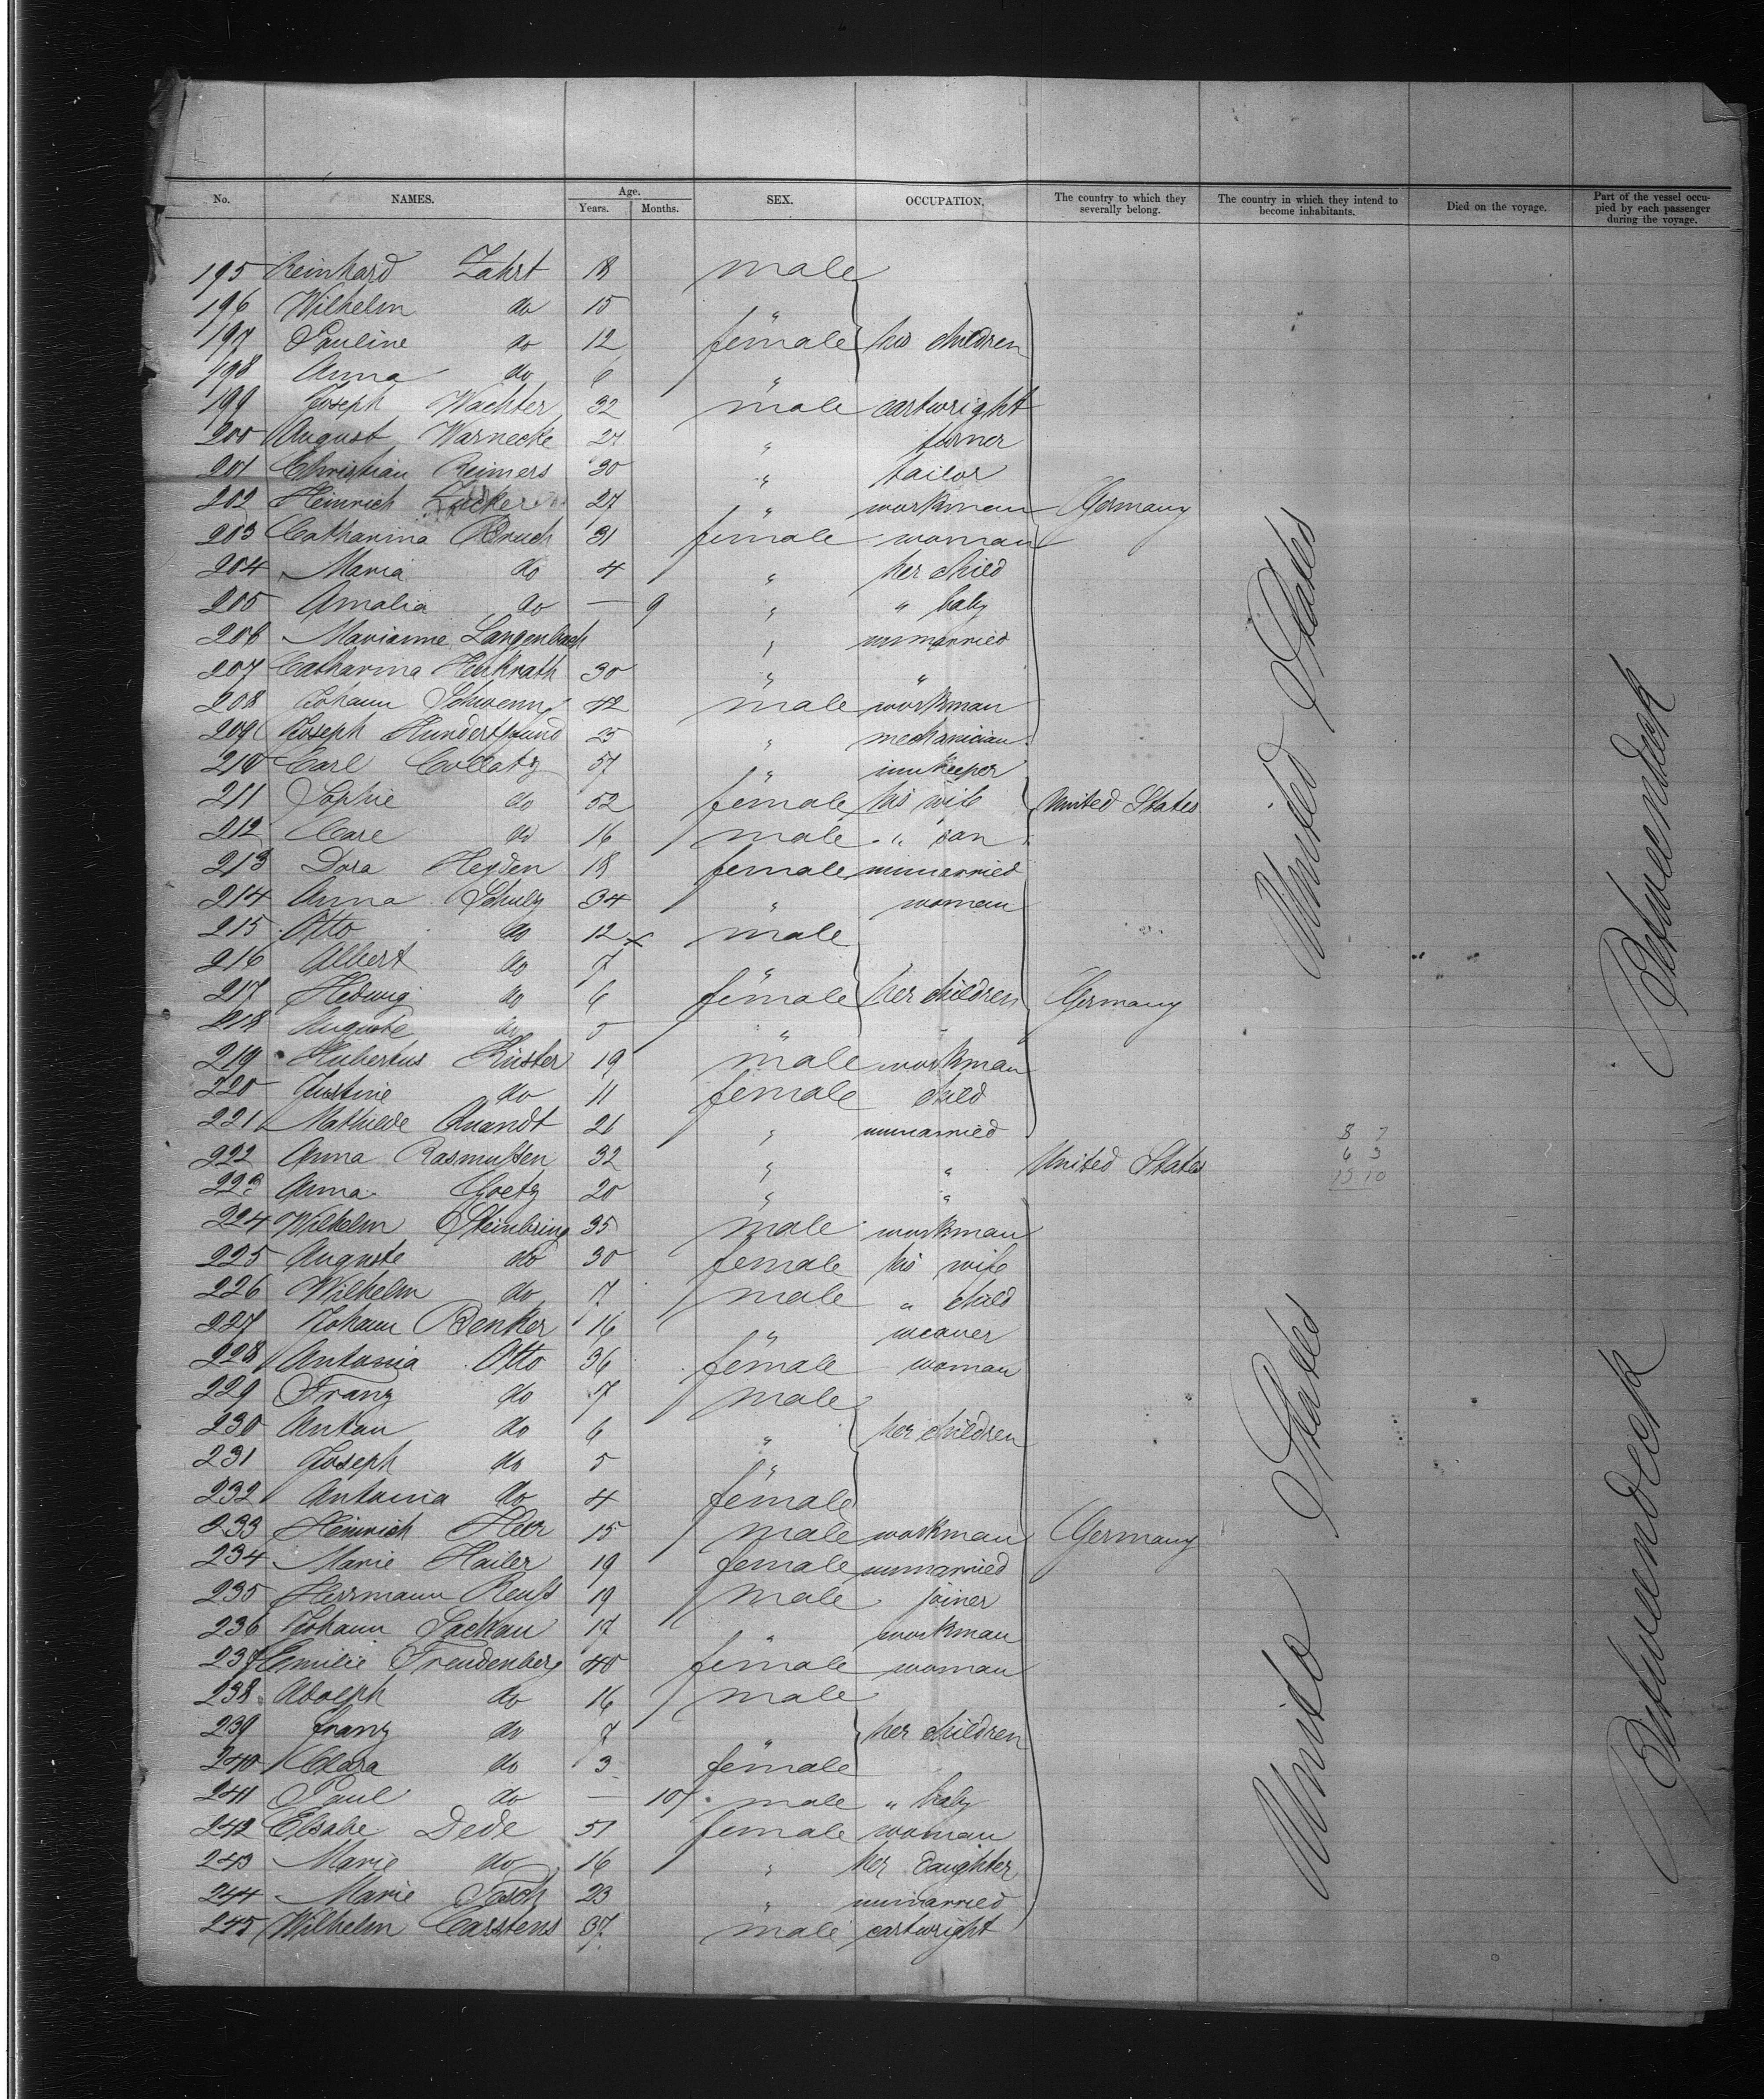 No. NAMES. Age. Years. Months. SEX. OCCUPATION. The country to which they severally belong. The country in which they intend to become inhabitants. Died on the voyage. Part of the vessel occupied by each passenger during the voyage.
195 Reinhard Zahrt 18 male
196 Wilhelm do 15 "
197 Pauline do 12 female his children
198 Anna do 6 "
199 Joseph Wachter 32 male cartwright
200 August Warnecke 27 " turner
201 Christian Reimers 30 " tailor
202 Heinrich 27 " workman Germany
203 Catharina Bruch 31 female woman
204 Maria do 4 " her child
205 Amalia do — 9 " " baby
206 Marianne Langenbach " unmarried
207 Catharina Heikrath 30 " "
208 Johann Schwenn 42 male workman
209 Joseph Hundertpfund 25 " mechanician
210 Carl Collatz 57 " innkeeper
211 Sophie do 52 female his wife United States
212 Carl do 16 male " son
213 Dora Heyden 18 female unmarried
214 Anna Schulz 34 " woman
215 Otto do 12 male
216 Albert do 7 "
217 Hedwig do 6 female her children Germany
218 Auguste do 5 "
219 Hubertus Küster 19 male workman
220 Justine do 11 female child
221 Mathilde Quandt 21 " unmarried
222 Anna Rasmußen 32 " " United States
223 Anna Goetz 20 " "
224 Wilhelm Steinbring 35 male workman
225 Auguste do 30 female his wife
226 Wilhelm do 7 male " child
227 Johann Benker 16 " weaver
228 Antonia Otto 36 female woman
229 Franz do 7 male
230 Anton do 6 " her children
231 Joseph do 5 "
232 Antonia do 4 female
233 Heinrich Herr 15 male workman Germany
234 Marie Hailer 19 female unmarried
235 Herrmann Reuß 19 male joiner
236 Johann Sackau 17 " workman
237 Emilie Freudenberg 40 female woman
238 Adolph do 16 male
239 Franz do 7 " her children
240 Clara do 3 female
241 Paul do — 10 male " baby
242 Elsabe Dede 51 female woman
243 Marie do 16 " her daughter
244 Marie Pasch 23 " unmarried
245 Wilhelm Carstens 37 male cartwright
United States
United States
Betweendeck
Betweendeck
8 7
6 3
15 10